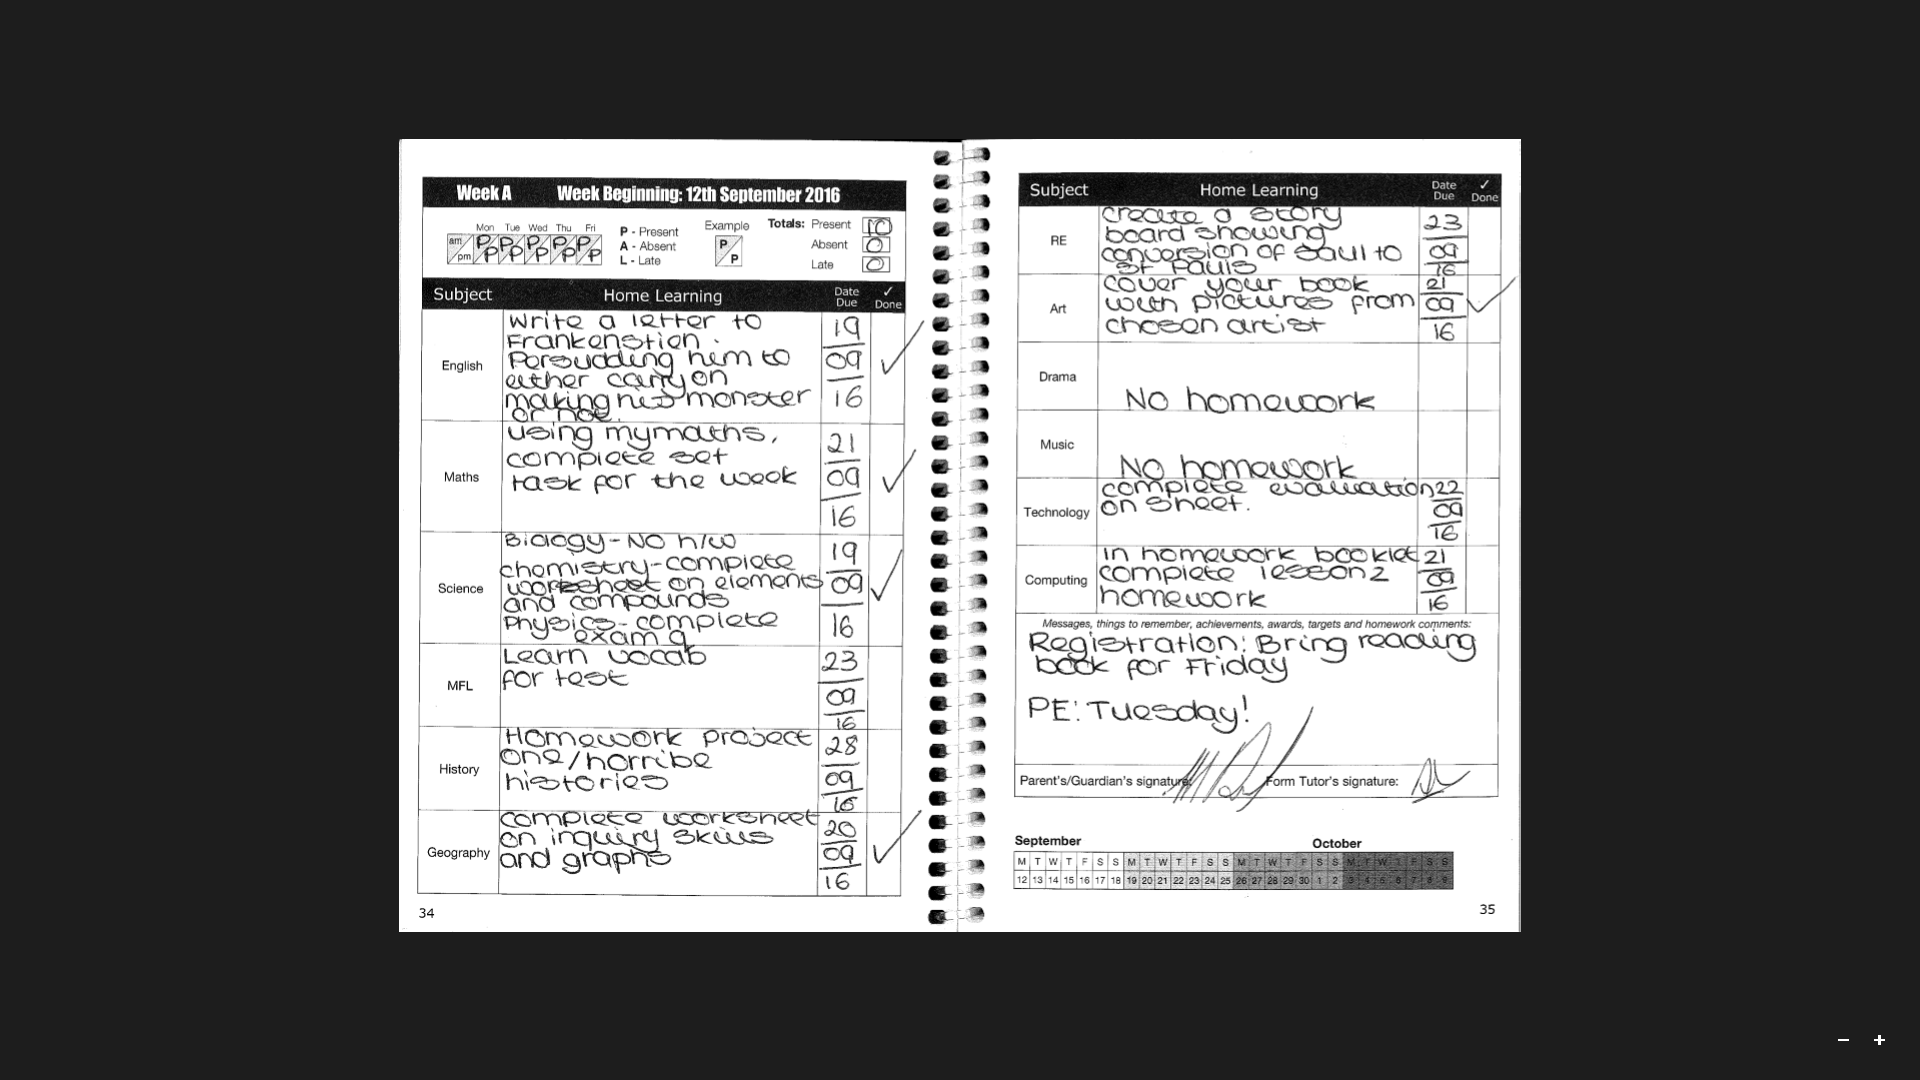 Week A Week Beginning: 12th September 2016
Mon Tue Wed Thu Fri
am
pm
P P P P P
P P P P P
P - Present
A - Absent
L - Late
Example
P
P
Totals: Present 10
Absent 0
Late 0
Subject Home Learning Date Due ✓ Done
English
Write a letter to
Frankenstien.
Persuading him to
either carry on
making his monster
or not.
19
09
16
✓
Maths
using mymaths,
complete set
task for the week
21
09
16
✓
Science
Biology - No h/w
chemistry - complete
worksheet on elements
and compounds
Physics - complete
exam q
19
09
16
✓
MFL
Learn vocab
for test
23
09
16
History
Homework project
one/horribe
histories
28
09
16
Geography
complete worksheet
on inquiry skills
and graphs
20
09
16
✓
34
Subject Home Learning Date Due ✓ Done
RE
create a story
board showing
conversion of Saul to
St Pauls
23
09
16
Art
cover your book
with pictures from
chosen artist
21
09
16
✓
Drama
No homework
Music
No homework
Technology
complete evaluation
on sheet.
22
09
16
Computing
in homework booklet
complete lesson 2
homework
21
09
16
Messages, things to remember, achievements, awards, targets and homework comments:
Registration: Bring reading
book for Friday
PE: Tuesday!
Parent's/Guardian's signature: Form Tutor's signature:
September October
M T W T F S S M T W T F S S M T W T F S S M T W T F S S
12 13 14 15 16 17 18 19 20 21 22 23 24 25 26 27 28 29 30 1 2 3 4 5 6 7 8 9
35